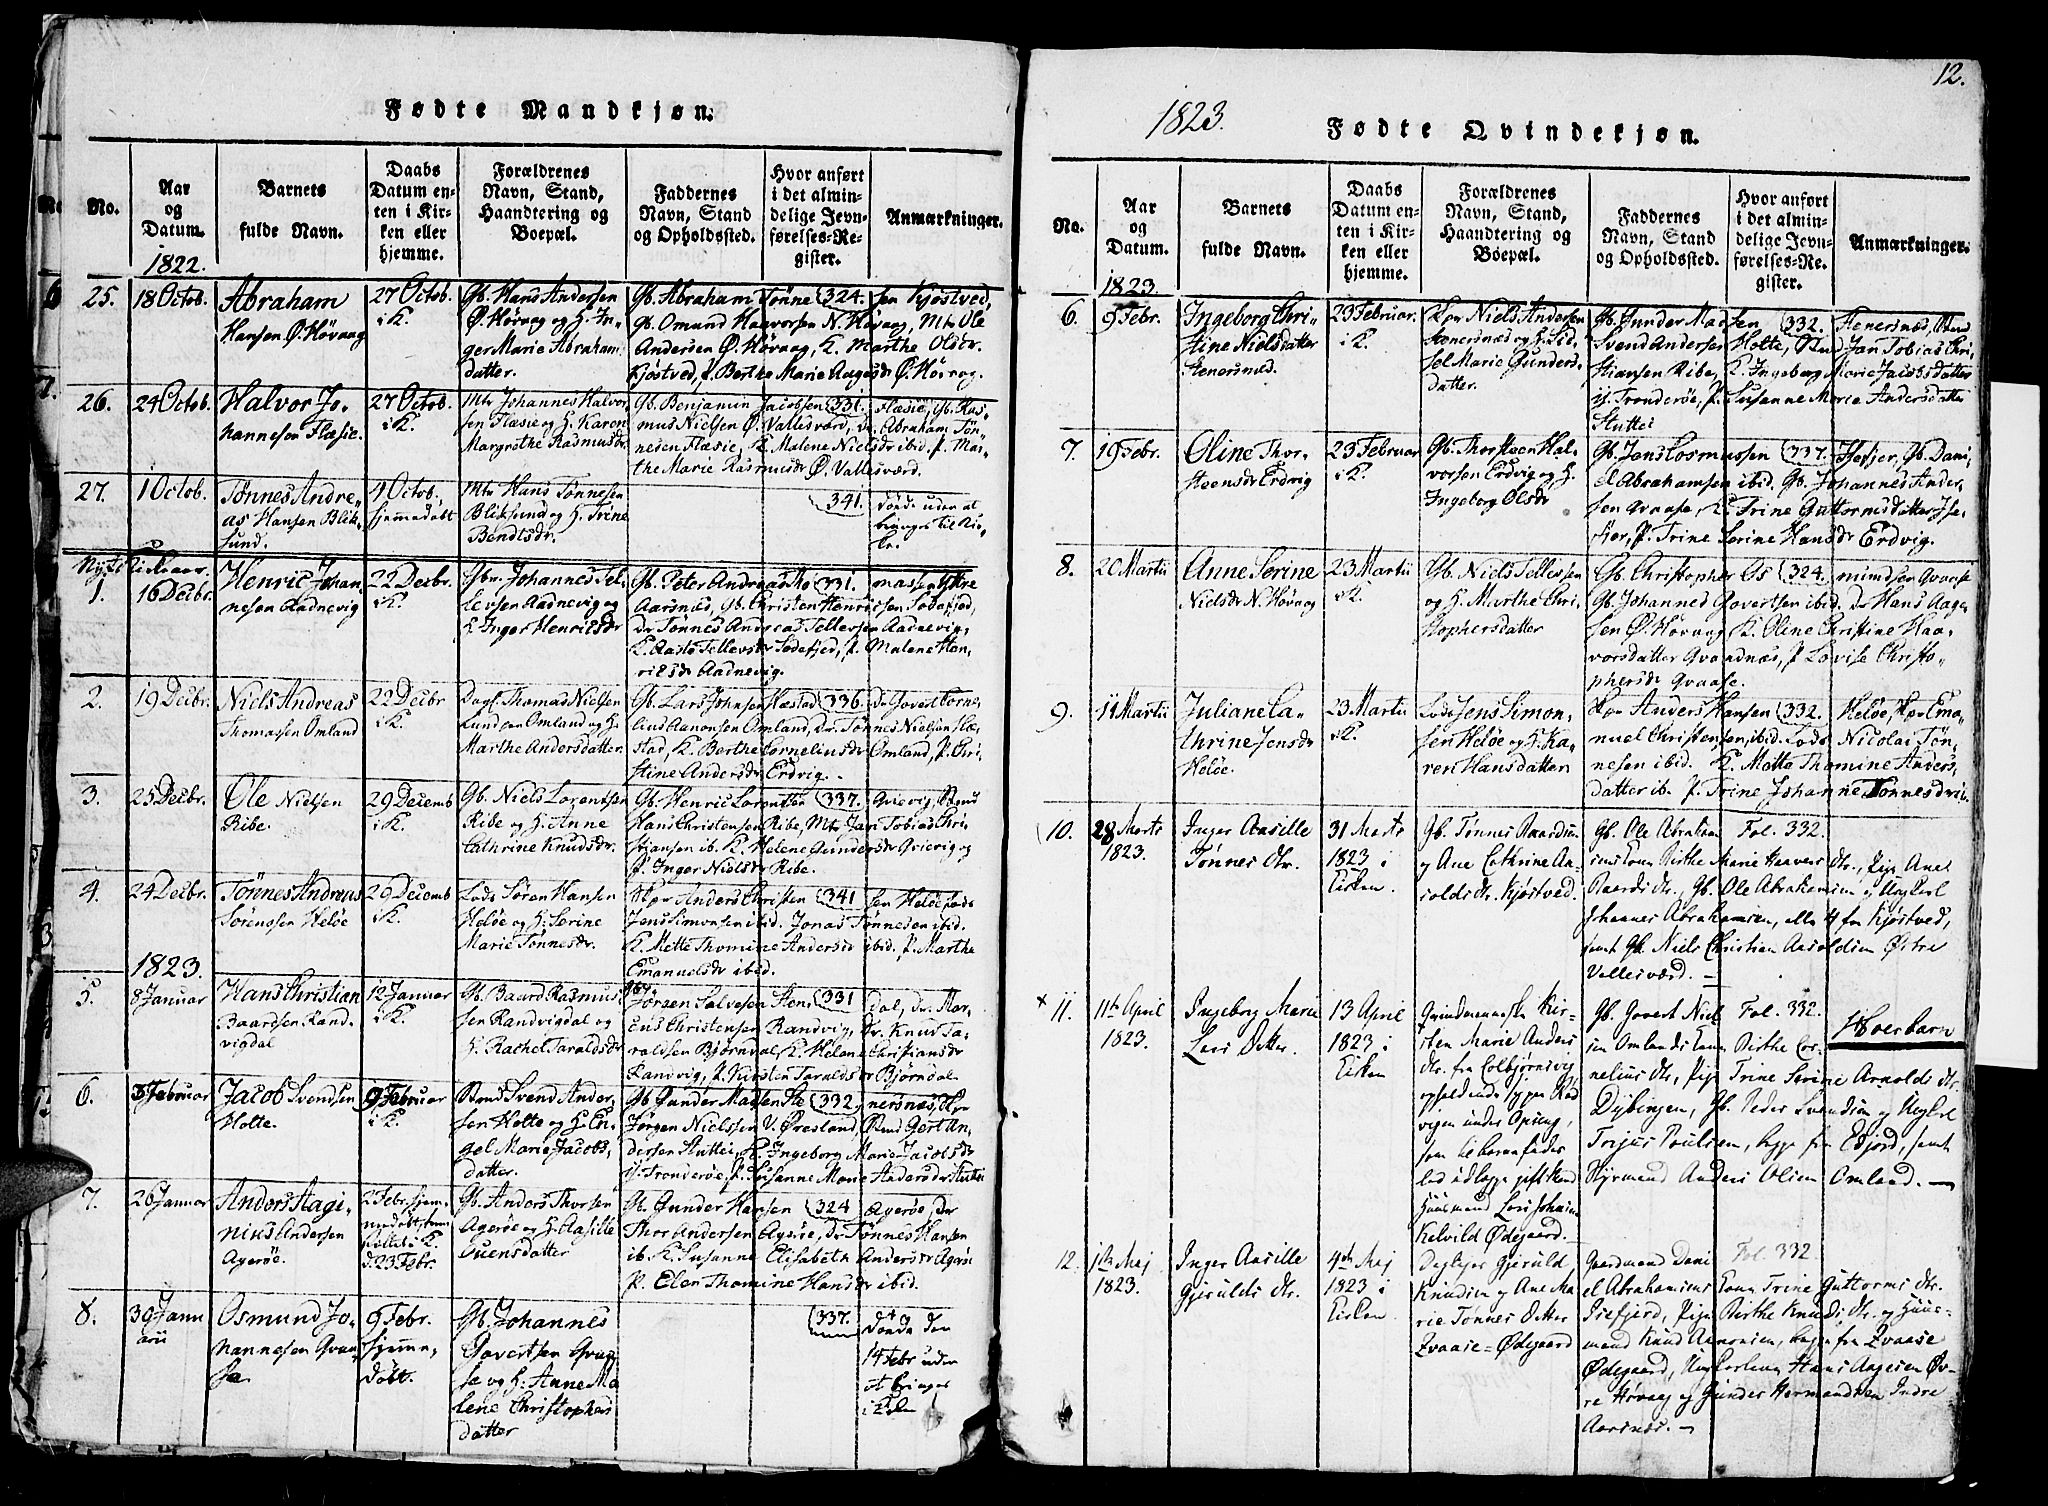 Fødte Mandkjøn.
No.
Aar
og
Datum.
Barnets
fulde Navn.
Daabs
Datum en-
ten i Kir-
ken eller
hjemme.
Forældrenes
Navn, Stand,
Haandtering og
Boepæl.
Faddernes
Navn, Stand
og Opholdssted.
Hvor anført
i det almin-
delige Jevn-
førelses-Re-
gister.
Anmærkninger.
1822.
25. 18 Octob.
Abraham
Hansen Ø. Høvaag
27 Octob.
i K.
Gb. Hans Andersen
Ø. Høvaag og H. In-
ger Marie Abraham
datter.
Gb. Abraham Tønne (324.) sen Kjøstved,
Gb. Omund Haavorsen N. Høvaag, Mtr Ole
Andersen Ø. Høvaag, K. Marthe Olsdr.
Kjöstved, P. Berthe Marie Aagesdr Ø. Høvaag.
26. 24 Octob.
Halvor Jo-
hannesen Flæsie.
27 Octob.
i K.
Mtr Johannes Halvor
sen Flæsie og H. Karen
Margrethe Rasmusdr.
Gb. Benjamin Jacobsen (331.) Flæsie, Gb. Ras-
mus Nielsen Ø. Vallesværd, Dr. Abraham Tön-
nesen Flæsie, K. Malene Nielsdr ibid. P. Mar-
the Marie Rasmusdr Ø. Vallesværd.
27. 1 Octob.
Tønnes Andre-
as Hansen Blik-
sund.
4 Octob.
hjemmedøbt
Mtr Hans Tønnesen
Bliksund og H. Trine
Bendtsdr.
341.
døde uden at
bringes til Kir-
ke.
Nyt Kirkeaar.
1. 16 Decbr
Henric Johan-
nesen Aadnevig
22 Decbr.
i K.
Gbr. Johannes Tel-
levsen Aadnevig og
H. Inger Henricsdr
Gb. Peter Andreas Tho (331.) massen Ydre
Aarsnæs, Gb. Christen Henricsen Sødefjed,
Dr Tønnes Andreas Tellevsen Aadnevig,
K. Aaste Tellevsdr Sødefjed, P. Malene Hen-
ricsdr Aadnevig.
2. 19 Decbr.
Niels Andreas
Thomassen Omland
22 Decbr
i K.
Dagl. Thomas Nielsen
Lund paa Omland og H.
Marthe Andersdatter.
Gb. Lars Johnsen Hæstad (336.) Dr Govert Corne-
lius Aanonsen Omland, Dr. Tønnes Nielsen Hæ-
stad, K. Berthe Corneliusdr Omland, P. Chri-
stine Andersdr Erdvig.
3. 25 Decbr.
Ole Nielsen
Ribe.
29 Decemb
i K.
Gb. Niels Lorentsen
Ribe og H. Anne
Cathrine Knudsdr.
Gb. Henric Lorentsen (337.) Grævig, Rmd
Hans Christensen Ribe, Mtr Jan Tobias Chri-
stiansen ib. K. Helene Gundersdr Grævig og
P. Inger Nielsdr Ribe.
4. 24 Decbr.
Tønnes Andreas
Sörenssen Heløe
29 Decemb
i K.
Lods Søren Hansen
Heløe og H. Serine
Marie Tønnesdr.
Skpr Anders Christen (341) sen Heløe, Lods
Jens Simonsen ibid. Jonas Tønnesen ibid.
K. Mette Thomine Andersdr ibid. P. Marthe
Emanuelsdr ibid.
1823.
5. 8 Januar
Hans Christian
Baardsen Rand-
vigdal
12 Januar
i K.
Gb. Baard Rasmus-
sen Randvigdal og
H. Rachel Taraldsdr
Jørgen Salvesen Sten (331) dal, Dr. Mar-
cus Christensen Randvig, Dr. Knud Ta-
raldsen Bjørndal, K. Helene Christiansdr
Randvig, P. Kirsten Taraldsdr Bjørndal.
6. 3 Februar
Jacob Svendsen
Holte.
9 Februar
i K.
Rmd Svend Ander-
sen Holte og H. En-
gel Marie Jacobs-
datter.
Gb Gunder Madsen Ste (332.) nersnæs, Skpr
Jørgen Nielssen V. Øresland, Rmd Gert An-
dersen Stuttei, K. Ingeborg Marie Jacobsdr
y. Tronderøe, P. Susanne Marie Andersdr Stuttei
7. 26 Januar
Anders Aagi-
nius Andersen
Agerøe.
2 Febr. hjem-
medøbt, frem-
stillet i K.
d. 23 Febr.
Gb. Anders Thorsen
Agerøe og H. Aasille
Guensdatter
Gb Gunder Hansen (324) Agerøe, Dr
Thor Andersen Aysøe, Dr Tønnes Hansen
ib. K. Susanne Elisabeth Andersdr Agerøe
P. Elen Thomine Hansdr ibid.
8. 30 Janu
arii
Osmund Jo-
hannesen Qvaa-
se
9 Febr.
hjemme-
døbt.
Gb. Johannes
Govertsen Qvaa
se og H. Anne Ma
lene Christophers
datter
337.
døde den
14 Febr uden
at bringes
i Kirken
12.
1823.
Fødte Qvindekjøn.
No.
Aar
og
Datum.
Barnets
fulde Navn.
Daabs
Datum en-
ten i Kir-
ken eller
hjemme.
Forældrenes
Navn, Stand,
Haandtering og
Boepæl.
Faddernes
Navn, Stand
og Opholdssted.
Hvor anført
i det almin-
delige Jevn-
førelses-Re-
gister.
Anmærkninger.
1823.
6. 9 Febr.
Ingeborg Chri-
stine Nielsdatter
Stenersnæs.
23 Februar.
i K.
Skpr Niels Andersen
Stenersnæs og H. Sid-
sel Marie Gunders-
datter.
Gb. Gunder Madsen (332.) Stenersnæs, Rmd
Svend Andersen Holte, Rmd Jan Tobias Chri-
stiansen Ribe, K. Ingeborg Marie Jacobsdatter
y. Tronderøe, P. Susanne Marie Andersdatter
Stuttei
7. 19 Febr.
Oline Thor-
steensdr Erdvig
23 Februar
i K.
Gb. Thorsteen Hal-
vorsen Erdvig og H.
Ingeborg Olsdr
Gb. Jens Rosmussen (337.) Isefjer, Gb. Dani-
el Abrahamsen ibid. Gb. Johannes Ander-
sen Qvaase, K. Trine Guttormsdatter Ise-
fjer, P. Trine Serine Hansdr Erdvig.
8. 20 Martii
Anne Serine
Nielsdr N. Høvaag
23 Martii
i K.
Gb. Niels Tellefsen
og H. Marthe Chri-
stophersdatter
Gb. Christopher Os (324.) mundsen Qvaase
Gb. Johannes Govertsen ibid. Dr Hans Aage
sen Ø. Høvaag K. Oline Christine Haa-
vorsdatter Qvaadnæs, P. Lovise Christo-
phersdr Qvaase.
9. 14 Martii
Juliane Ca-
thrine Jensdr
Heløe.
23 Martii
i K.
Lods Jens Simon-
sen Heløe og H. Ka-
ren Hansdatter
Skpr Anders Hansen (332.) Heløe, Skpr Ema-
nuel Christensen ibid. Lods Nicolai Tøn-
nesen ibid. K. Mette Thomine Anders-
datter ib. P. Trine Johanne Tønnesdr ib.
10. 28 Marts
1823.
Inger Aasille
Tønnes Dtr.
31 Marts
1823 i
Kirken
Gb. Tønnes Baardsen
og Ane Cathrine Aa-
rolds Dtr. Kjøstved.
Gb. Ole Abraham Fol. 332.
sens Kone Birthe Marie Haavors Dtr., Pige Ane
Baards Dtr., Gb. Ole Abrahamsen og Ungkarl
Johannes Abrahamsen, alle 4 fra Kjøstved,
samt Gb. Niels Christian Aaroldsen Østre
Vallesværd.
× 11. 11te April
1823.
Ingeborg Marie
Lars Datter.
13 April
1823 i
Kirken
Qvindemenneske Kir-
sten Marie Anders
Dtr. fra Colbjørnsvig
opholdende sig paa Rad
vigen under Opsing,
som til Barnefader
udlagde gift Mand
Huusmand Lars Johan
Kelvild Ødegaard.
Gb. Govert Niel- Fol. 332.
sen Omlands Kone Birthe Cor-
nelius Dtr, Pige Trine Serine Arnolds Dtr.
Dybingen, Gb. Peder Svendsen og Ungkarl
Terjus Poulsen, begge fra Edjord, samt
Styrmand Anders Olsen Omland.
Hoerbarn
12. 1te Maj
1823.
Inger Aasille
Gjerulds Dtr.
4de Maj
1823 i
Kirken
Dagl. Gjeruld
Knudsen og Ane Ma-
rie Tønnes Datter
Qvaase-Ødegaard
Gaardmand Dani Fol. 332.
el Abrahamsens Kone Trine Guttorms Dtr.
Isefjord, Pige Birthe Knuds Dtr. og Huus-
mand Knud Aanonsen, begge fra Qvaase
Ødegaard, Ungkarlene Hans Aagesen Øv-
re Høvaag og Gunder Hermandsen Indre
Aarsnæs.